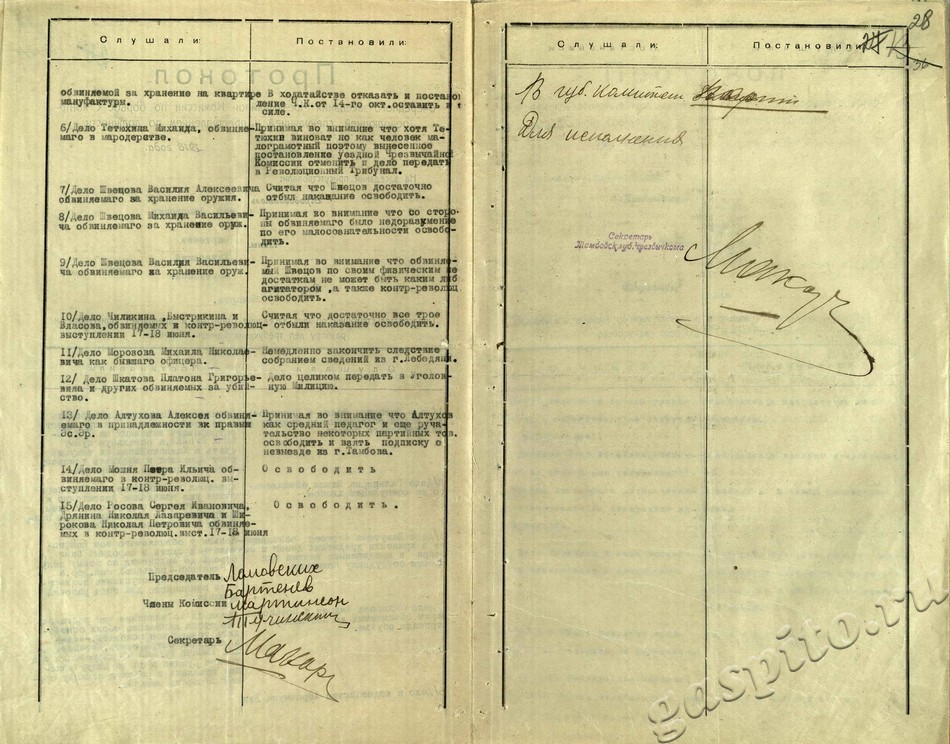 Слушали:
Постановили:
обвиняемой за хранение на квартире
мануфактуры.
В ходатайстве отказать и постанов
ление Ч.К.от 14-го окт.оставить в
силе.
6/Дело Тетюхина Михаида, обвиняе-
маго в мародерстве.
Принимая во внимание что хотя Те-
тюхин виноват но как человек ма-
лограмотный поэтому вынесенное
постановление уездной Чрезвычайной
Комиссии отменить и дело передать
в Революционный Трибунал.
7/Дело Швецова Василия Алексеевича
обвиняемаго за хранение оружия.
Считая что Швецов достаточно
отбыл наказание освободить.
8/Дело Швецова Михаида Васильеви-
ча обвиняемаго за хранение оруж.
Принимая во внимание что со сторо-
ны обвиняемаго было недоразумение
по его малосознательности освобо-
дить.
9/Дело Швецова Василия Васильеви-
ча обвиняемаго за хранение оруж.
Принимая во внимание что обвиняе-
мый Швецов по своим физическим не
достаткам не может быть каким либ
агитатором ,а также контр-революц.
освободить.
10/Дело Чиликина ,Быстрикина и
Власова,обвиняемых в контр-револоц-
выступлении 17-18 июня.
Считая что достаточно все трое
отбыли наказание освободить.
11/Дело Морозова Михаила Николае-
вича как бывшаго офицера.
Немедленно закончить следствие
собранием сведений из г.Лебедяни.
12/ Дело Шкатова Платона Григорье-
вича и других обвиняемых за убий-
ство.
Дело целиком передать в Уголов-
ную Милицию.
13/ Дело Алтухова Алексея обвиня-
емаго в принадлежности вк правым
эс.эр.
Принимая во внимание что Алтухов
как средний педагог и еще руча-
тельство некоторых партийных тов.
освободить и взять подписку о
невыезде из г.Тамбова.
14/Дело Мошня Петра Ильича об-
виняемаго в контр-революц. вы-
ступлении 17-18 июня.
Освободить
15/Дело Росова Сергея Ивановича,
Дрянина Николая Лазаревича и Ши-
рокова Николая Петровича обвиняе-
мых в контр-революц.выст.17-18 июня
Освободить.
Председатель Ломовских
Бартенев
Члены Комиссии Мартинсон
Секретарь Макар
28
36
Слушали:
Постановили:
В губ. Комитет партии
Для исполнения
Секретарь
gaspito.ru